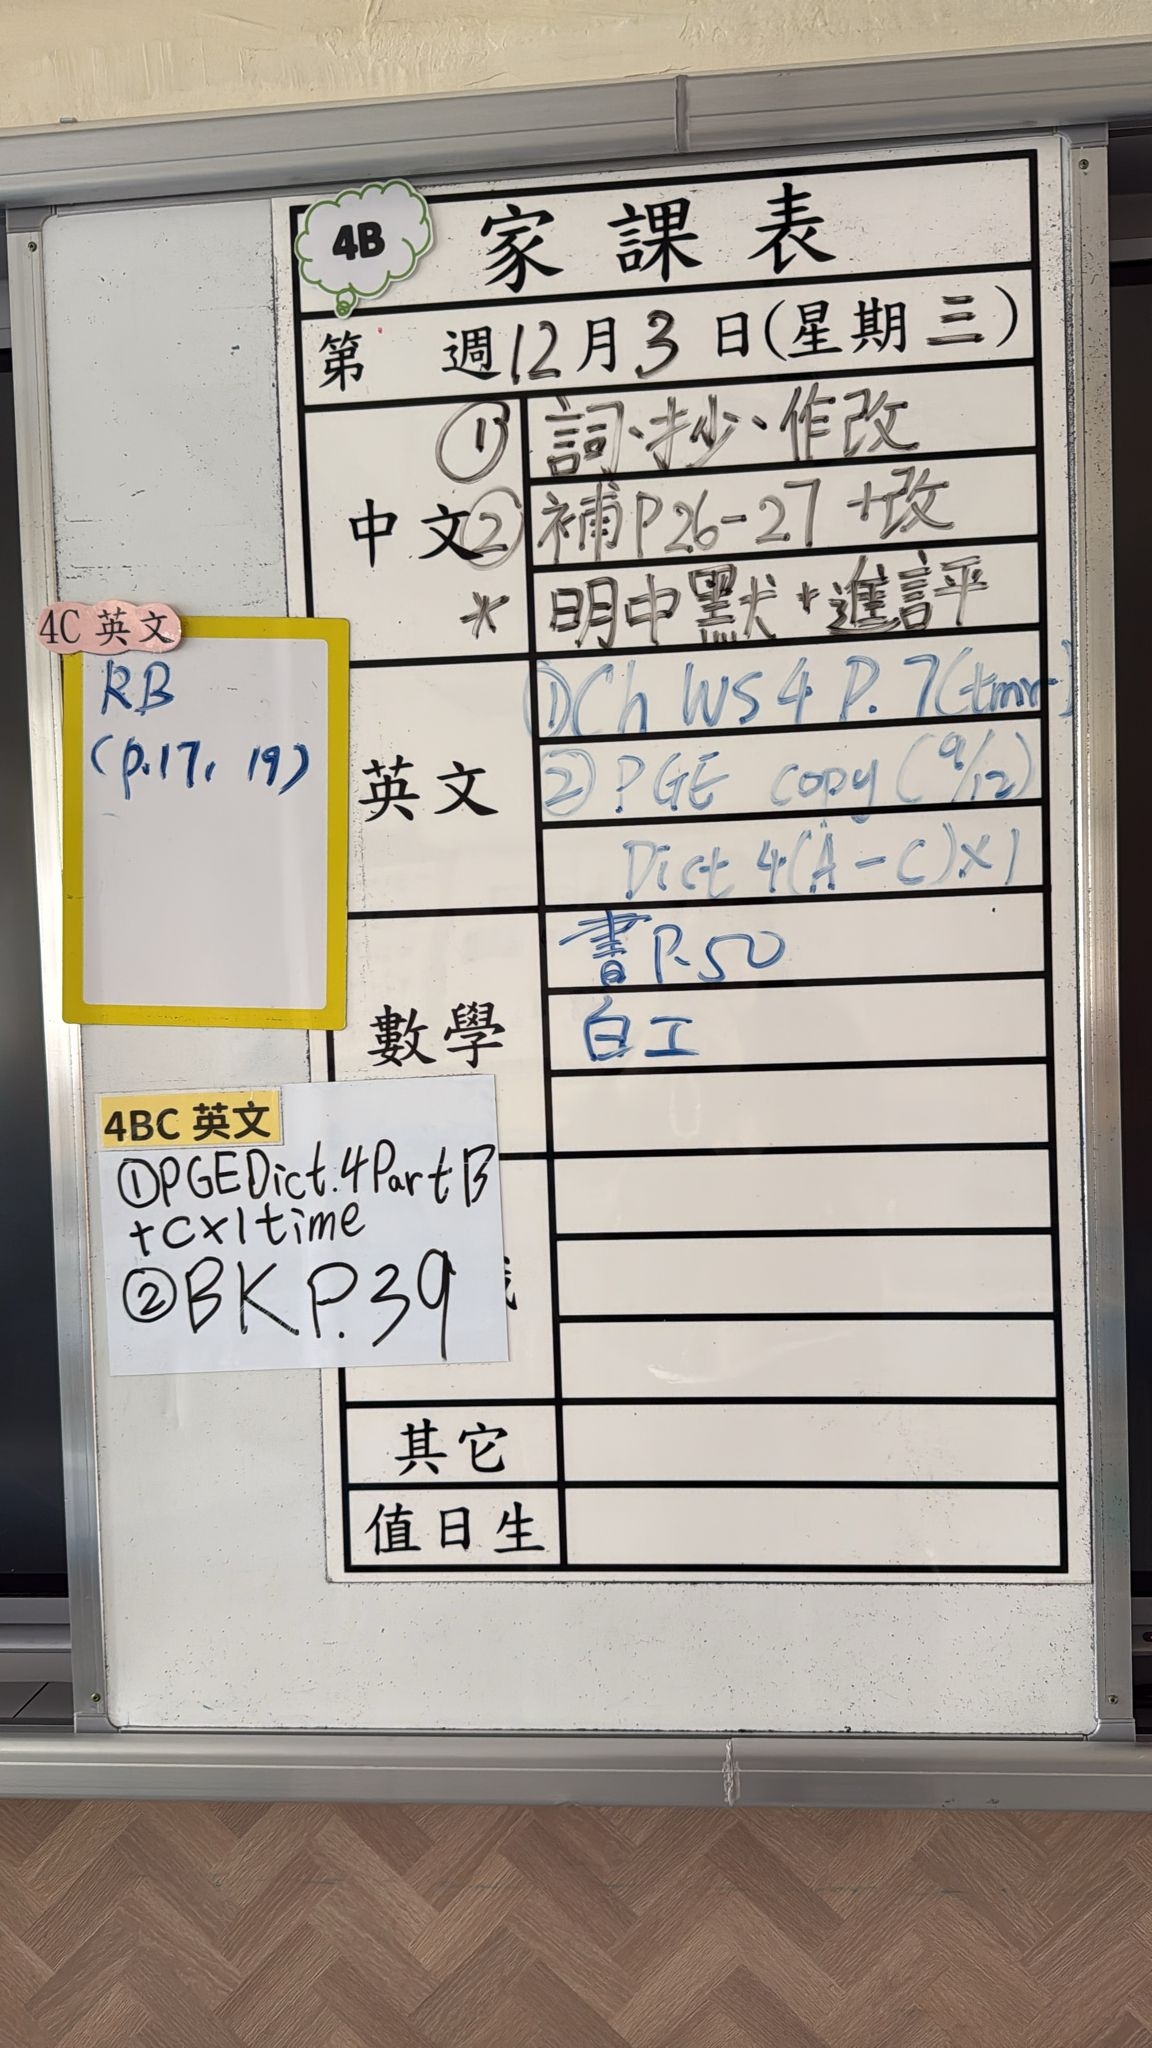 4B
家課表
第 週12月3日(星期三)
中文
① 詞、抄、作改
② 補P26-27 +改
* 明中默+進評
英文
①Ch WS4 P.7(tmr)
②PGE copy (9/12)
Dict 4(A-C)x1
數學
書P.50
白工
其它
值日生
4C 英文
RB
(p.17, 19)
4BC 英文
①PGEDict.4PartB
+Cx1time
②BKP.39